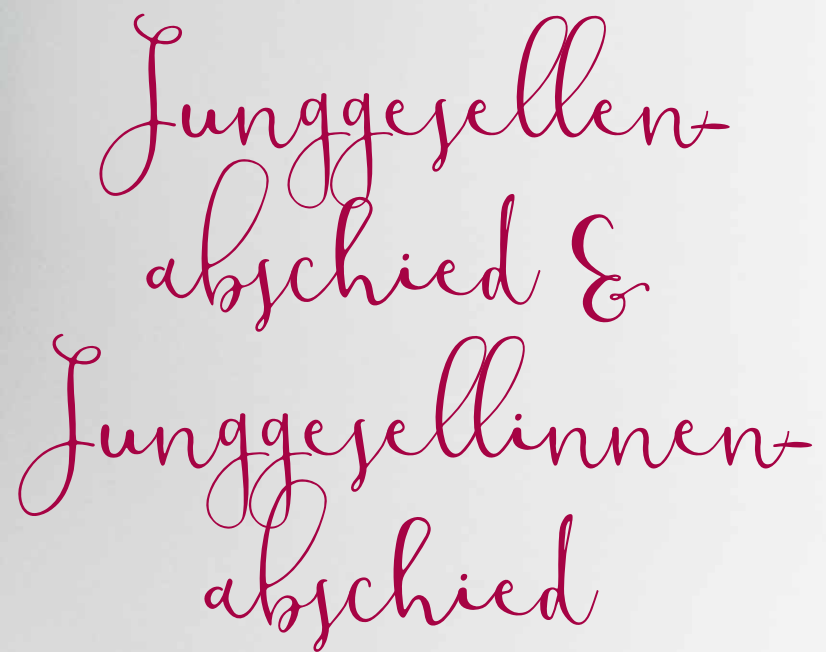 Junggesellen-
abschied &
Junggesellinnen-
abschied